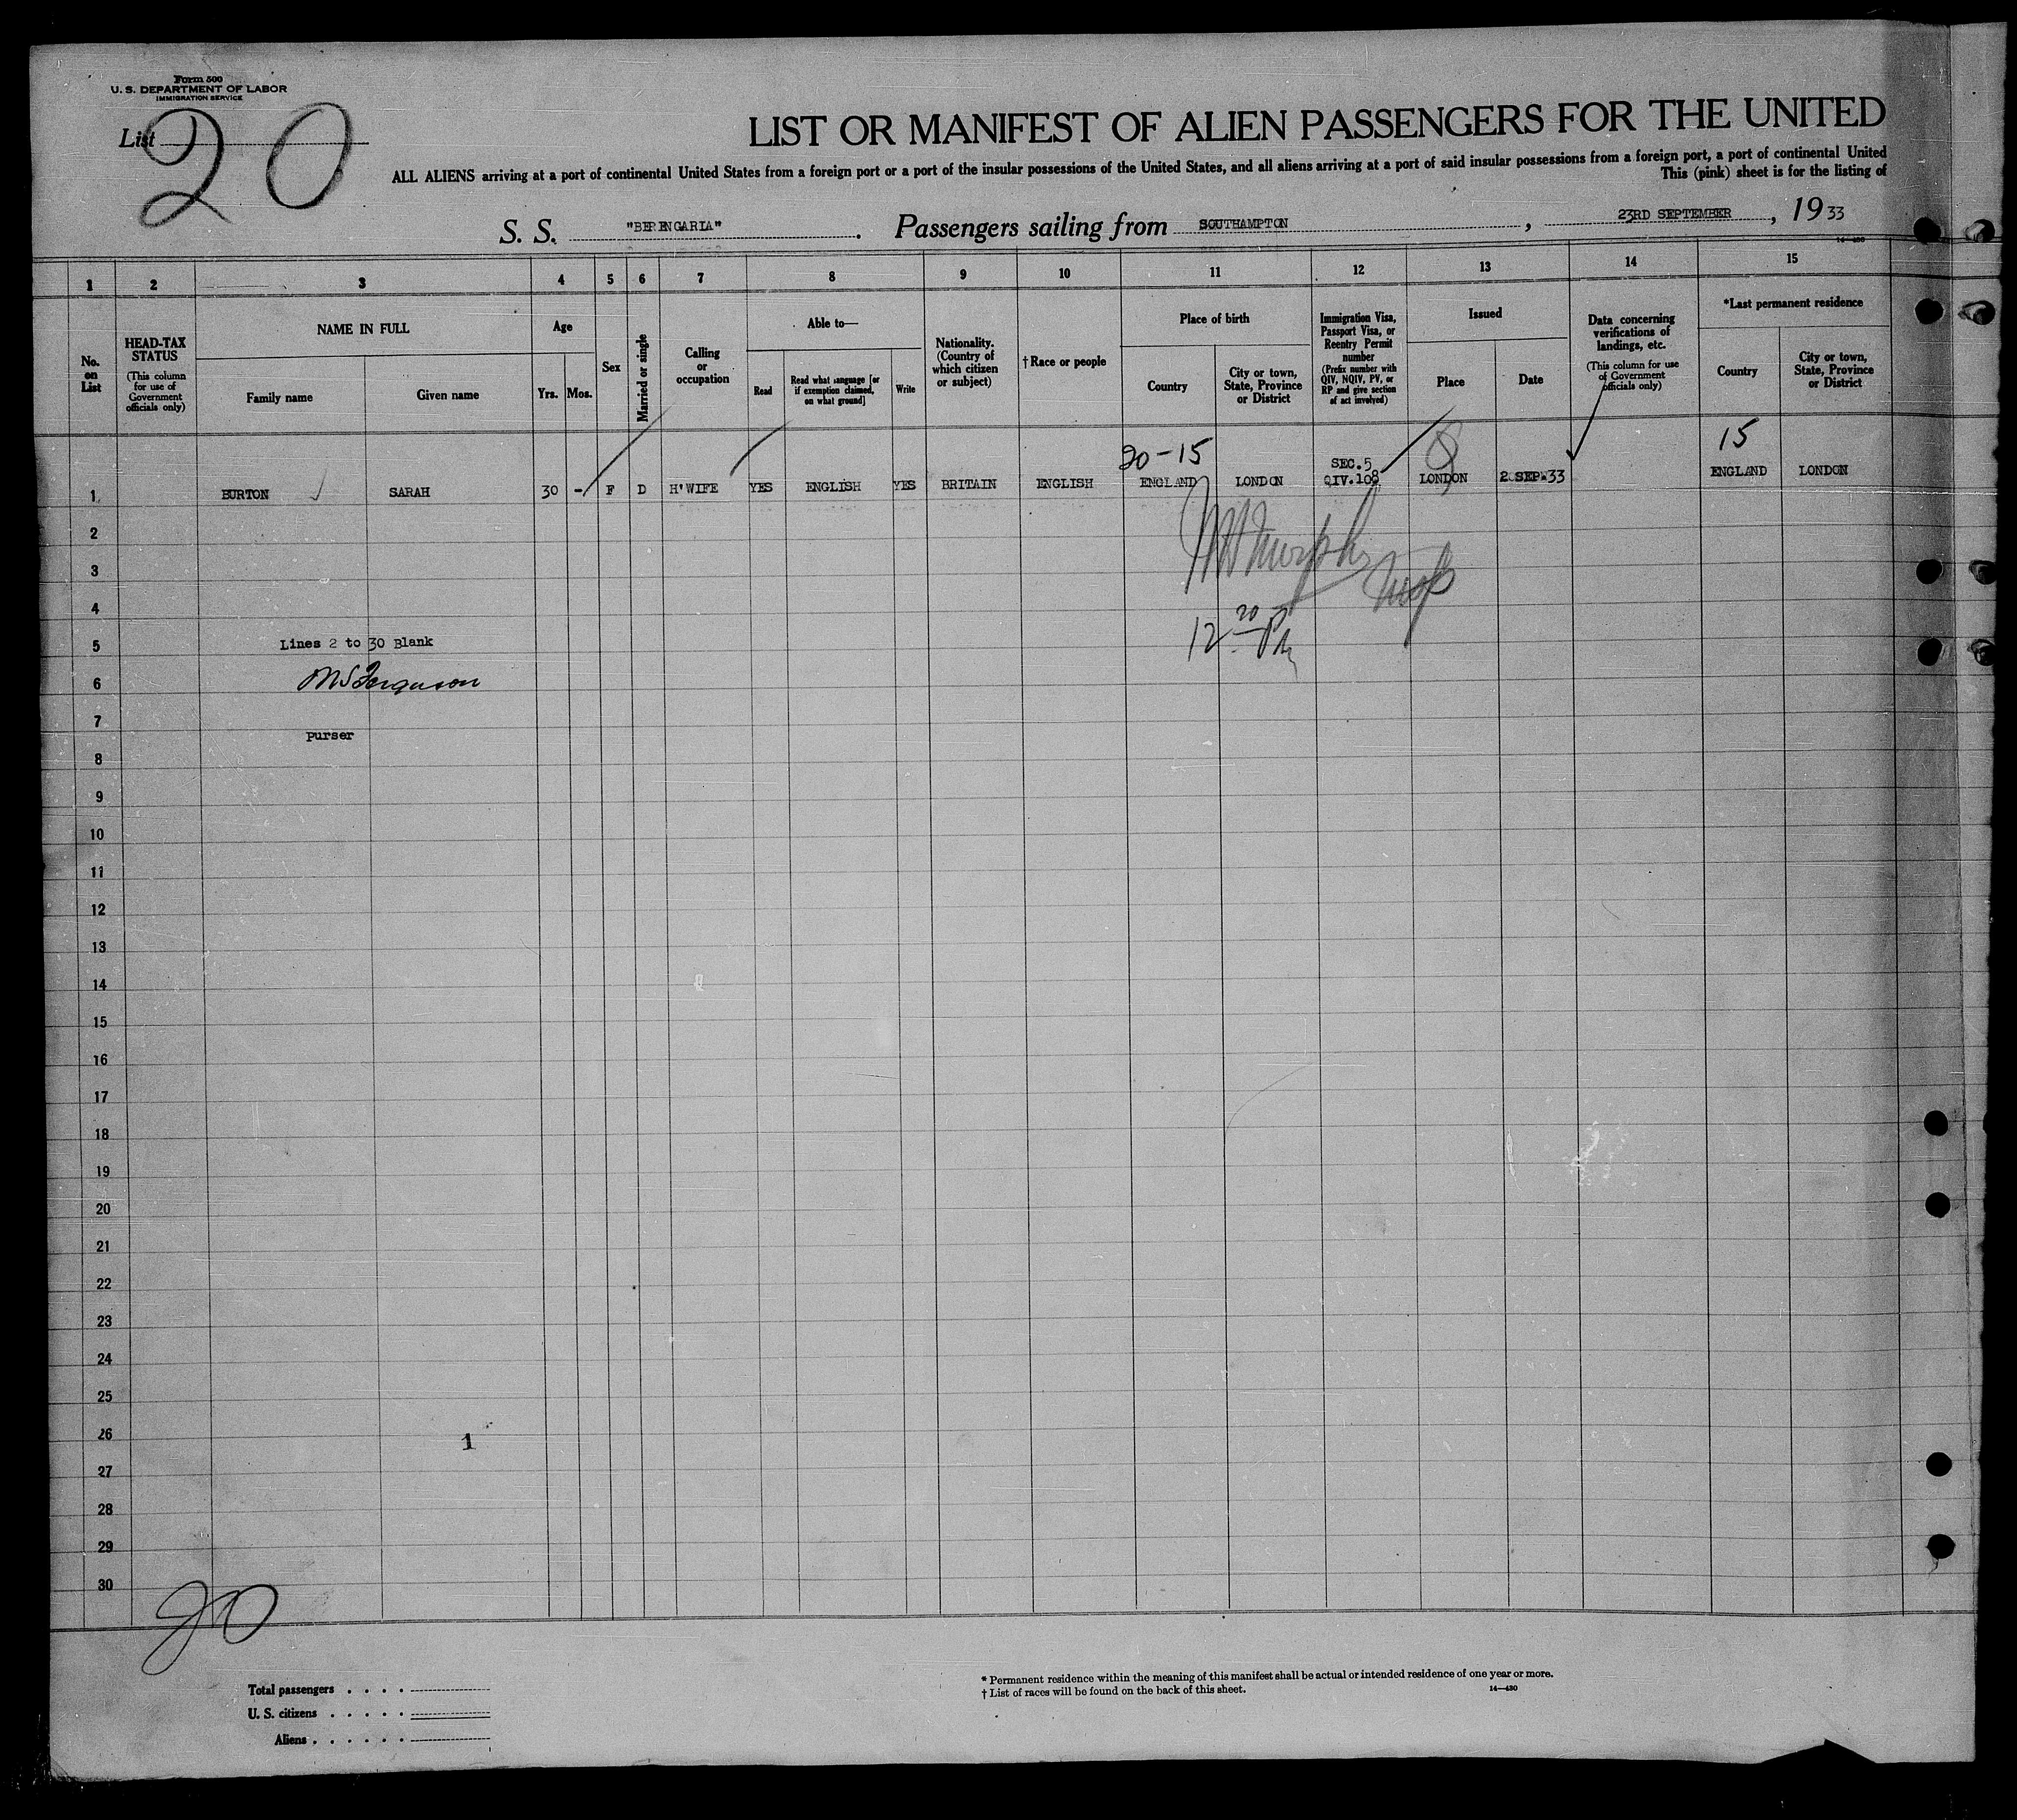 Form 500
U. S. DEPARTMENT OF LABOR
IMMIGRATION SERVICE
List
20
LIST OR MANIFEST OF ALIEN PASSENGERS FOR THE UNITED
ALL ALIENS arriving at a port of continental United States from a foreign port or a port of the insular possessions of the United States, and all aliens arriving at a port of said insular possessions from a foreign port, a port of continental United
This (pink) sheet is for the listing of
S. S. "BERENGARIA". Passengers sailing from SOUTHAMPTON, 23RD SEPTEMBER, 19 33
1 2 3 4 5 6 7 8 9 10 11 12 13 14 15
No. on List
HEAD-TAX STATUS (This column for use of Government officials only)
NAME IN FULL
Family name
Given name
Age
Yrs. Mos.
Sex
Married or single
Calling or occupation
Able to—
Read
Read what language [or if exemption claimed, on what ground]
Write
Nationality. (Country of which citizen or subject)
† Race or people
Place of birth
Country
City or town, State, Province or District
Immigration Visa, Passport Visa, or Reentry Permit number (Prefix number with QIV, NQIV, PV, or RP and give section of act involved)
Issued
Place
Date
Data concerning verifications of landings, etc. (This column for use of Government officials only)
*Last permanent residence
Country
City or town, State, Province or District
20-15
15
SEC. 5
1 BURTON SARAH 30 - F D H'WIFE YES ENGLISH YES BRITAIN ENGLISH ENGLAND LONDON QIV.108 LONDON 2 SEP. 33 ENGLAND LONDON
2
3
Murphy
4
12 20 PM
5 Lines 2 to 30 Blank
6 Ferguson
7
purser
8
9
10
11
12
13
14
15
16
17
18
19
20
21
22
23
24
25
26
1
27
28
29
30
20
Total passengers . . . .
U. S. citizens . . . . .
Aliens . . . . . .
* Permanent residence within the meaning of this manifest shall be actual or intended residence of one year or more.
† List of races will be found on the back of this sheet.
14—430